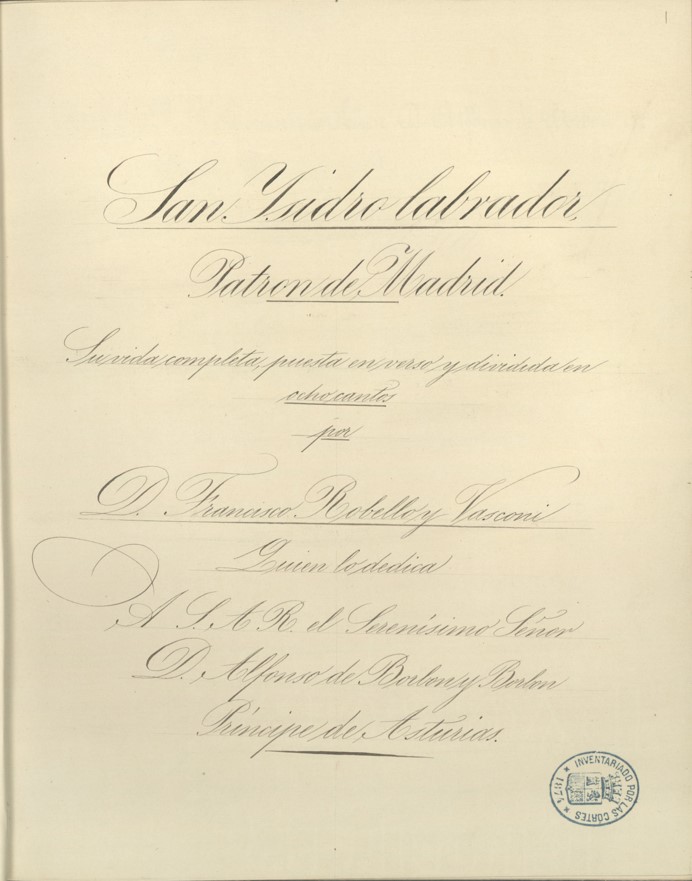 1
San Ysidro labrador,
Patron de Madrid.
Su vida completa, puesta en verso y dividida en
ocho cantos
por
D. Francisco Robello y Vasconi
Quien lo dedica
A S. A. R. el Serenísimo Señor
D. Alfonso de Borbon y Borbon
Príncipe de Asturias.
INVENTARIADO POR LAS CORTES
1874